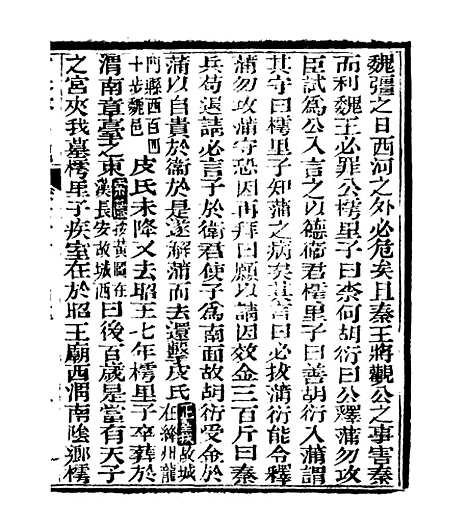 魏彊之日西河之外必危矣且秦王將觀公之事害秦
而利魏王必罪公樗里子曰柰何胡衍曰公釋蒲勿攻
臣試爲公入言之以德衛君樗里子曰善胡衍入蒲謂
其守曰樗里子知蒲之病矣其言曰必拔蒲衍能令釋
蒲勿攻蒲守恐因再拜曰願以請因效金三百斤曰秦
兵苟退請必言子於衛君使子爲南面故胡衍受金於
蒲以自貴於衛於是遂解蒲而去還擊皮氏正義故城在絳州龍
門縣西百四十步魏邑皮氏未降又去昭王七年樗里子卒葬於
渭南章臺之東索隱按黃圖在漢長安故城西曰後百歲是當有天子
之宮夾我墓樗里子疾室在於昭王廟西渭南陰鄉樗